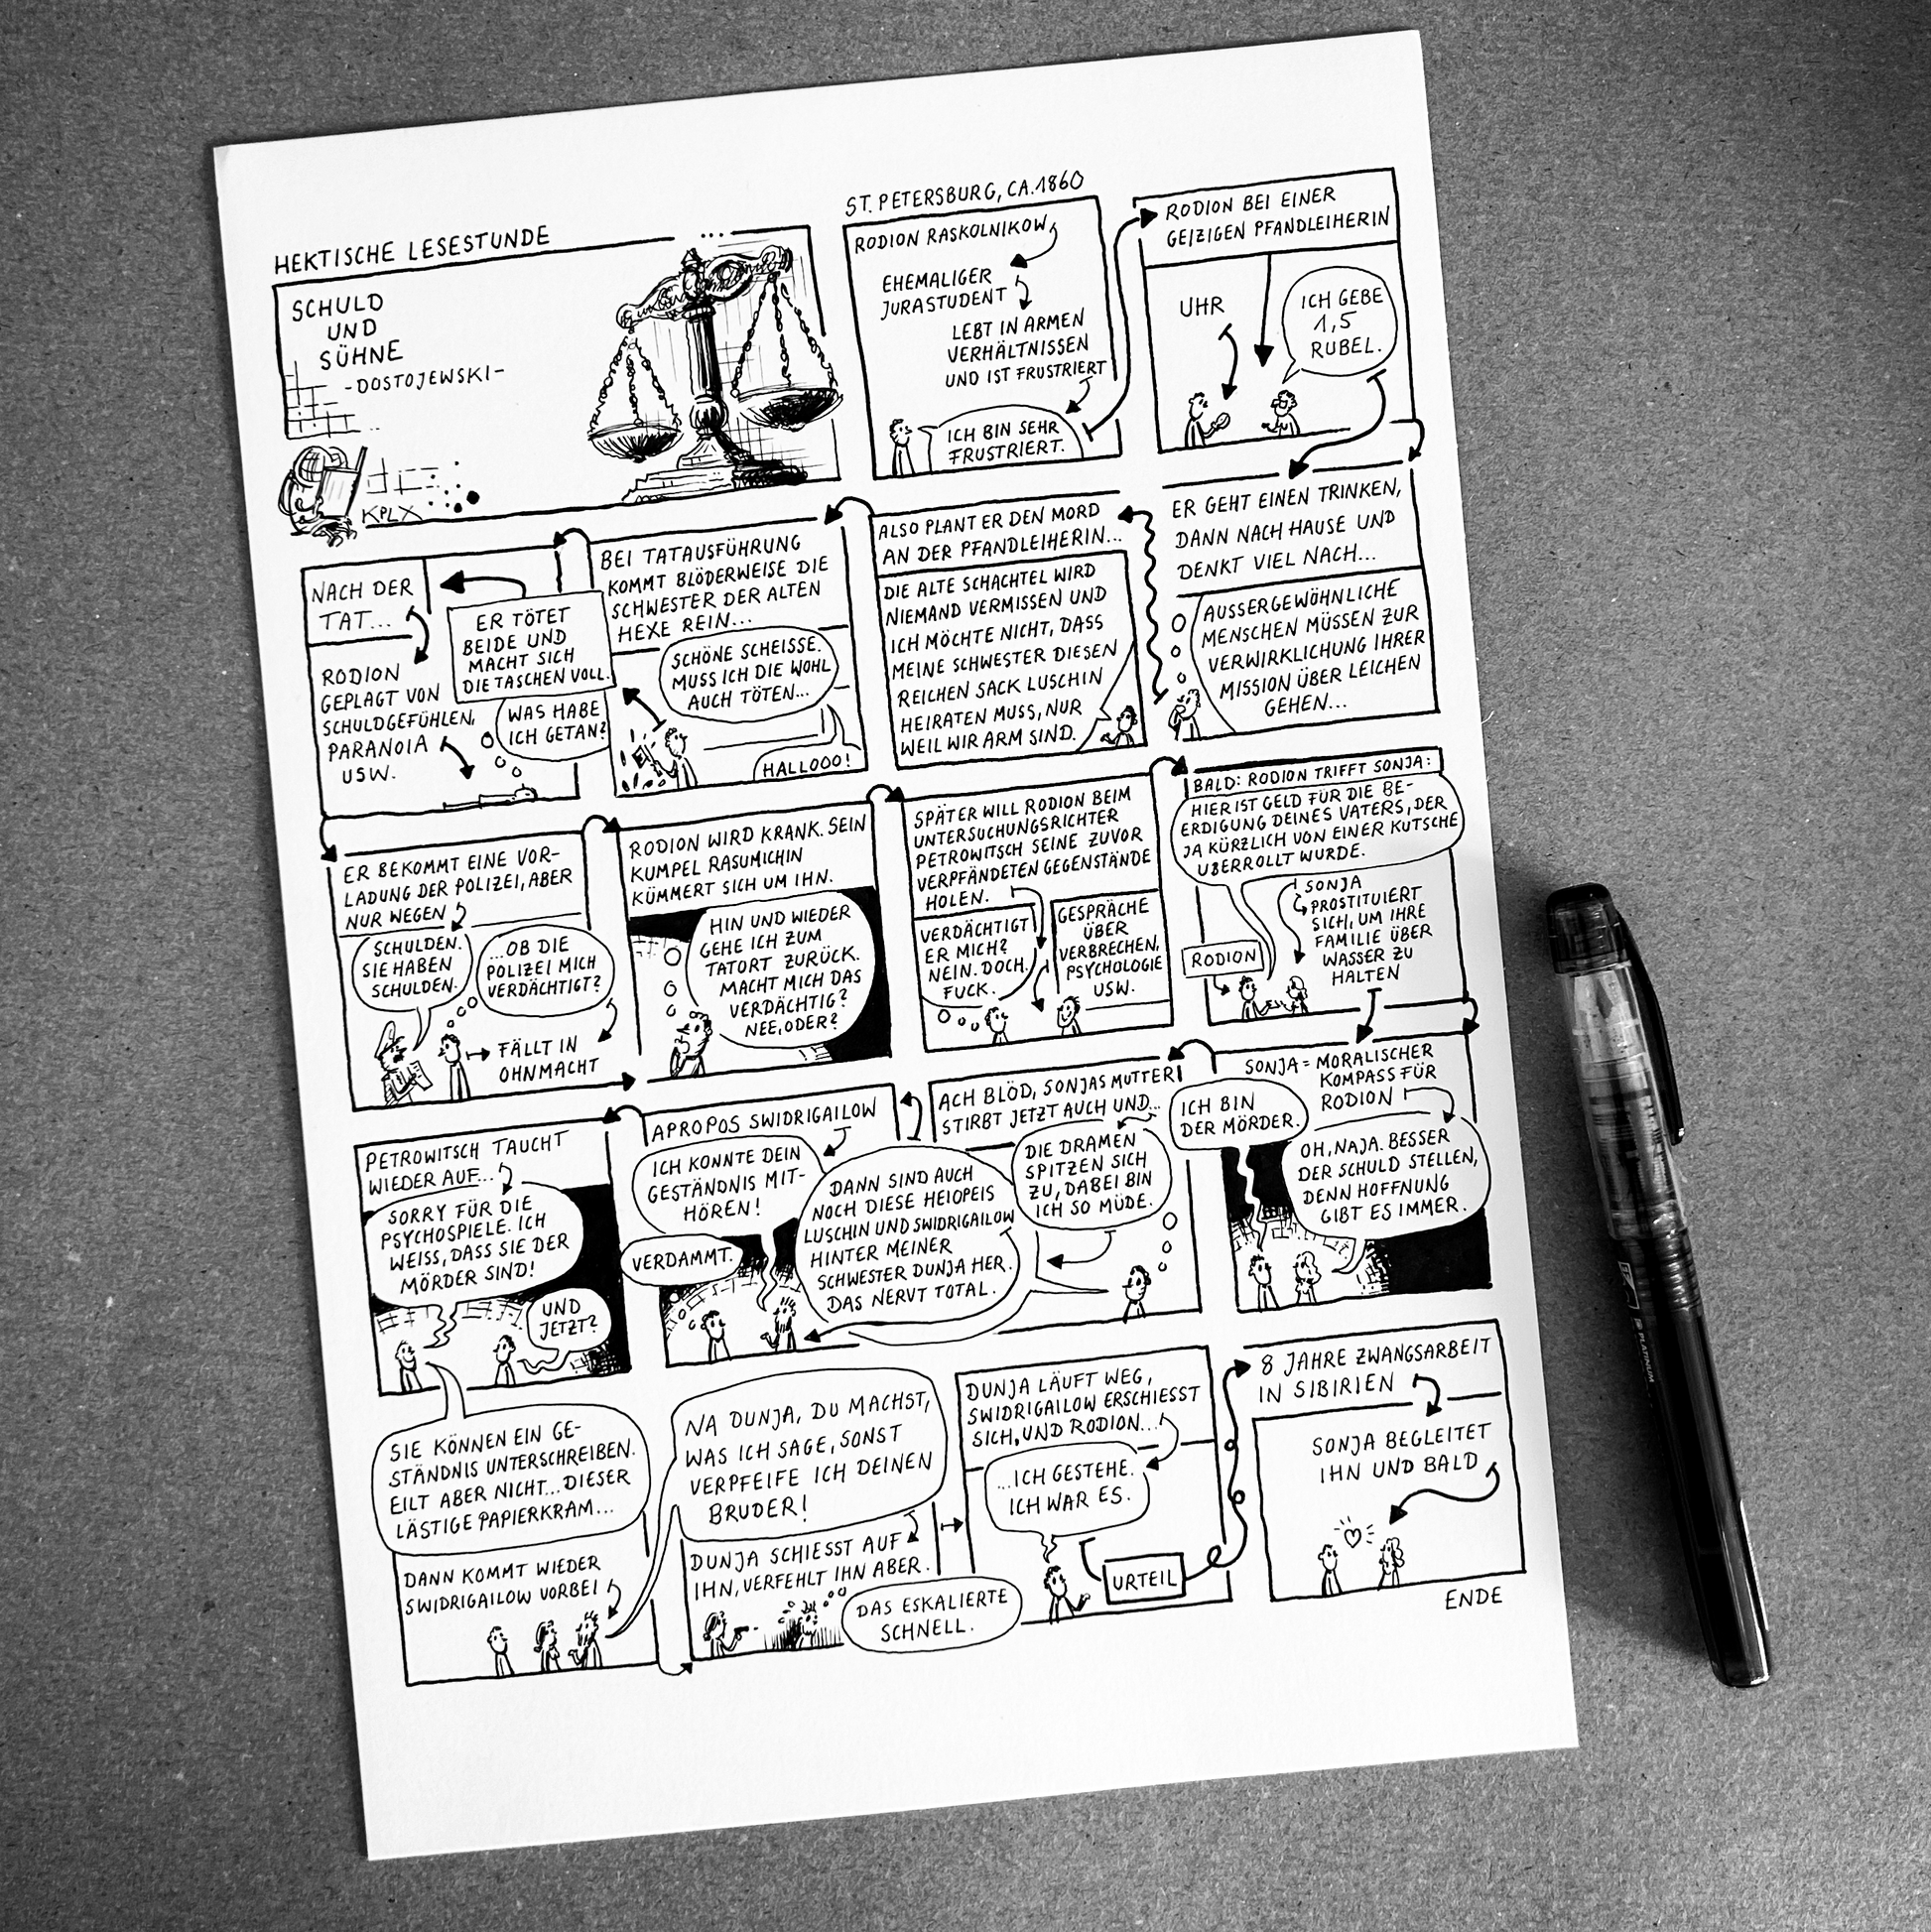 HEKTISCHE LESESTUNDE
SCHULD
UND
SÜHNE
-DOSTOJEWSKI-
KPLX
ST. PETERSBURG, CA. 1860
RODION RASKOLNIKOW
EHEMALIGER
JURASTUDENT
LEBT IN ARMEN
VERHÄLTNISSEN
UND IST FRUSTRIERT
ICH BIN SEHR
FRUSTRIERT.
RODION BEI EINER
GEIZIGEN PFANDLEIHERIN
UHR
ICH GEBE
1,5
RUBEL.
ER GEHT EINEN TRINKEN,
DANN NACH HAUSE UND
DENKT VIEL NACH...
AUSSERGEWÖHNLICHE
MENSCHEN MÜSSEN ZUR
VERWIRKLICHUNG IHRER
MISSION ÜBER LEICHEN
GEHEN...
ALSO PLANT ER DEN MORD
AN DER PFANDLEIHERIN...
DIE ALTE SCHACHTEL WIRD
NIEMAND VERMISSEN UND
ICH MÖCHTE NICHT, DASS
MEINE SCHWESTER DIESEN
REICHEN SACK LUSCHIN
HEIRATEN MUSS, NUR
WEIL WIR ARM SIND.
BEI TATAUSFÜHRUNG
KOMMT BLÖDERWEISE DIE
SCHWESTER DER ALTEN
HEXE REIN...
SCHÖNE SCHEISSE.
MUSS ICH DIE WOHL
AUCH TÖTEN...
HALLOOO!
ER TÖTET
BEIDE UND
MACHT SICH
DIE TASCHEN VOLL.
NACH DER
TAT...
RODION
GEPLAGT VON
SCHULDGEFÜHLEN,
PARANOIA
USW.
WAS HABE
ICH GETAN?
ER BEKOMMT EINE VOR-
LADUNG DER POLIZEI, ABER
NUR WEGEN
SCHULDEN.
SIE HABEN
SCHULDEN.
...OB DIE
POLIZEI MICH
VERDÄCHTIGT?
FÄLLT IN
OHNMACHT
RODION WIRD KRANK. SEIN
KUMPEL RASUMICHIN
KÜMMERT SICH UM IHN.
HIN UND WIEDER
GEHE ICH ZUM
TATORT ZURÜCK.
MACHT MICH DAS
VERDÄCHTIG?
NEE, ODER?
SPÄTER WILL RODION BEIM
UNTERSUCHUNGSRICHTER
PETROWITSCH SEINE ZUVOR
VERPFÄNDETEN GEGENSTÄNDE
HOLEN.
VERDÄCHTIGT
ER MICH?
NEIN. DOCH.
FUCK.
GESPRÄCHE
ÜBER
VERBRECHEN,
PSYCHOLOGIE
USW.
BALD: RODION TRIFFT SONJA:
HIER IST GELD FÜR DIE BE-
ERDIGUNG DEINES VATERS, DER
JA KÜRZLICH VON EINER KUTSCHE
ÜBERROLLT WURDE.
RODION
SONJA
PROSTITUIERT
SICH, UM IHRE
FAMILIE ÜBER
WASSER ZU
HALTEN
SONJA = MORALISCHER
KOMPASS FÜR
RODION
ICH BIN
DER MÖRDER.
OH, NAJA. BESSER
DER SCHULD STELLEN,
DENN HOFFNUNG
GIBT ES IMMER.
ACH BLÖD, SONJAS MUTTER
STIRBT JETZT AUCH UND...
DIE DRAMEN
SPITZEN SICH
ZU, DABEI BIN
ICH SO MÜDE.
DANN SIND AUCH
NOCH DIESE HEIOPEIS
LUSCHIN UND SWIDRIGAILOW
HINTER MEINER
SCHWESTER DUNJA HER.
DAS NERVT TOTAL.
APROPOS SWIDRIGAILOW
ICH KONNTE DEIN
GESTÄNDNIS MIT-
HÖREN!
VERDAMMT.
PETROWITSCH TAUCHT
WIEDER AUF...
SORRY FÜR DIE
PSYCHOSPIELE. ICH
WEISS, DASS SIE DER
MÖRDER SIND!
UND
JETZT?
SIE KÖNNEN EIN GE-
STÄNDNIS UNTERSCHREIBEN.
EILT ABER NICHT... DIESER
LÄSTIGE PAPIERKRAM...
DANN KOMMT WIEDER
SWIDRIGAILOW VORBEI
NA DUNJA, DU MACHST,
WAS ICH SAGE, SONST
VERPFEIFE ICH DEINEN
BRUDER!
DUNJA SCHIESST AUF
IHN, VERFEHLT IHN ABER.
DAS ESKALIERTE
SCHNELL.
DUNJA LÄUFT WEG,
SWIDRIGAILOW ERSCHIESST
SICH, UND RODION...
...ICH GESTEHE.
ICH WAR ES.
URTEIL
8 JAHRE ZWANGSARBEIT
IN SIBIRIEN
SONJA BEGLEITET
IHN UND BALD
ENDE
PLATINUM